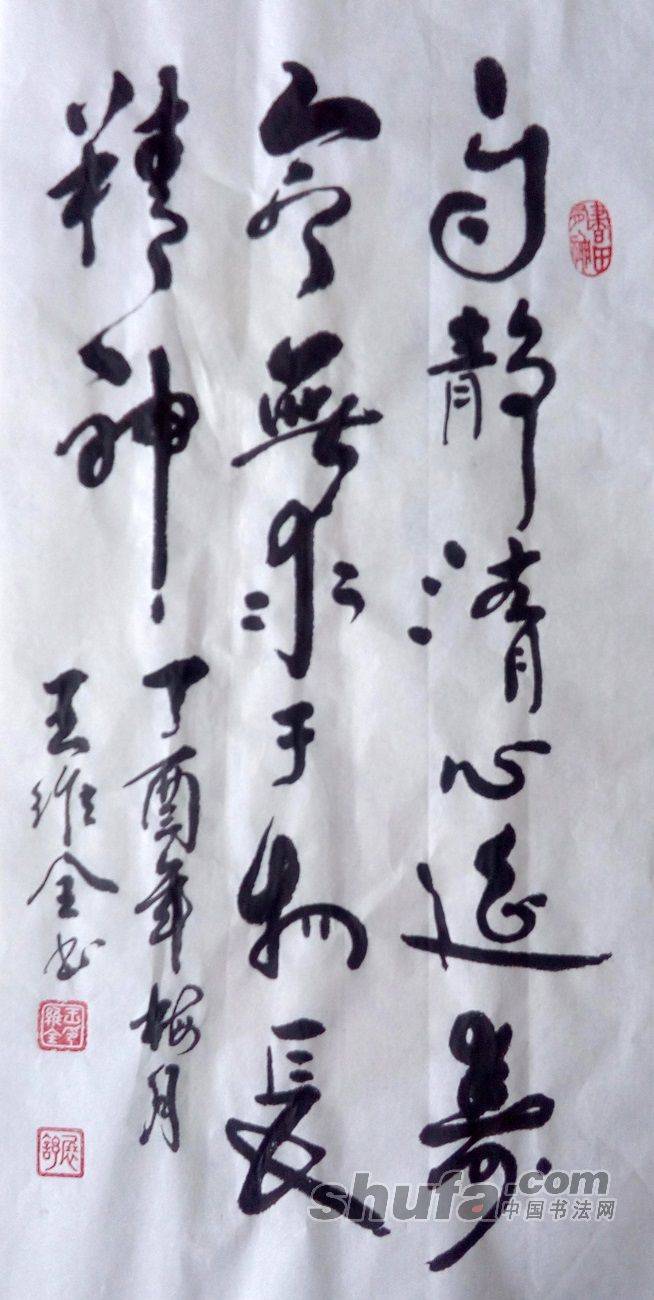 自静清心延寿
命無求于物長
精神
丁酉年梅月
王维全书
shufa.com
中国书法网